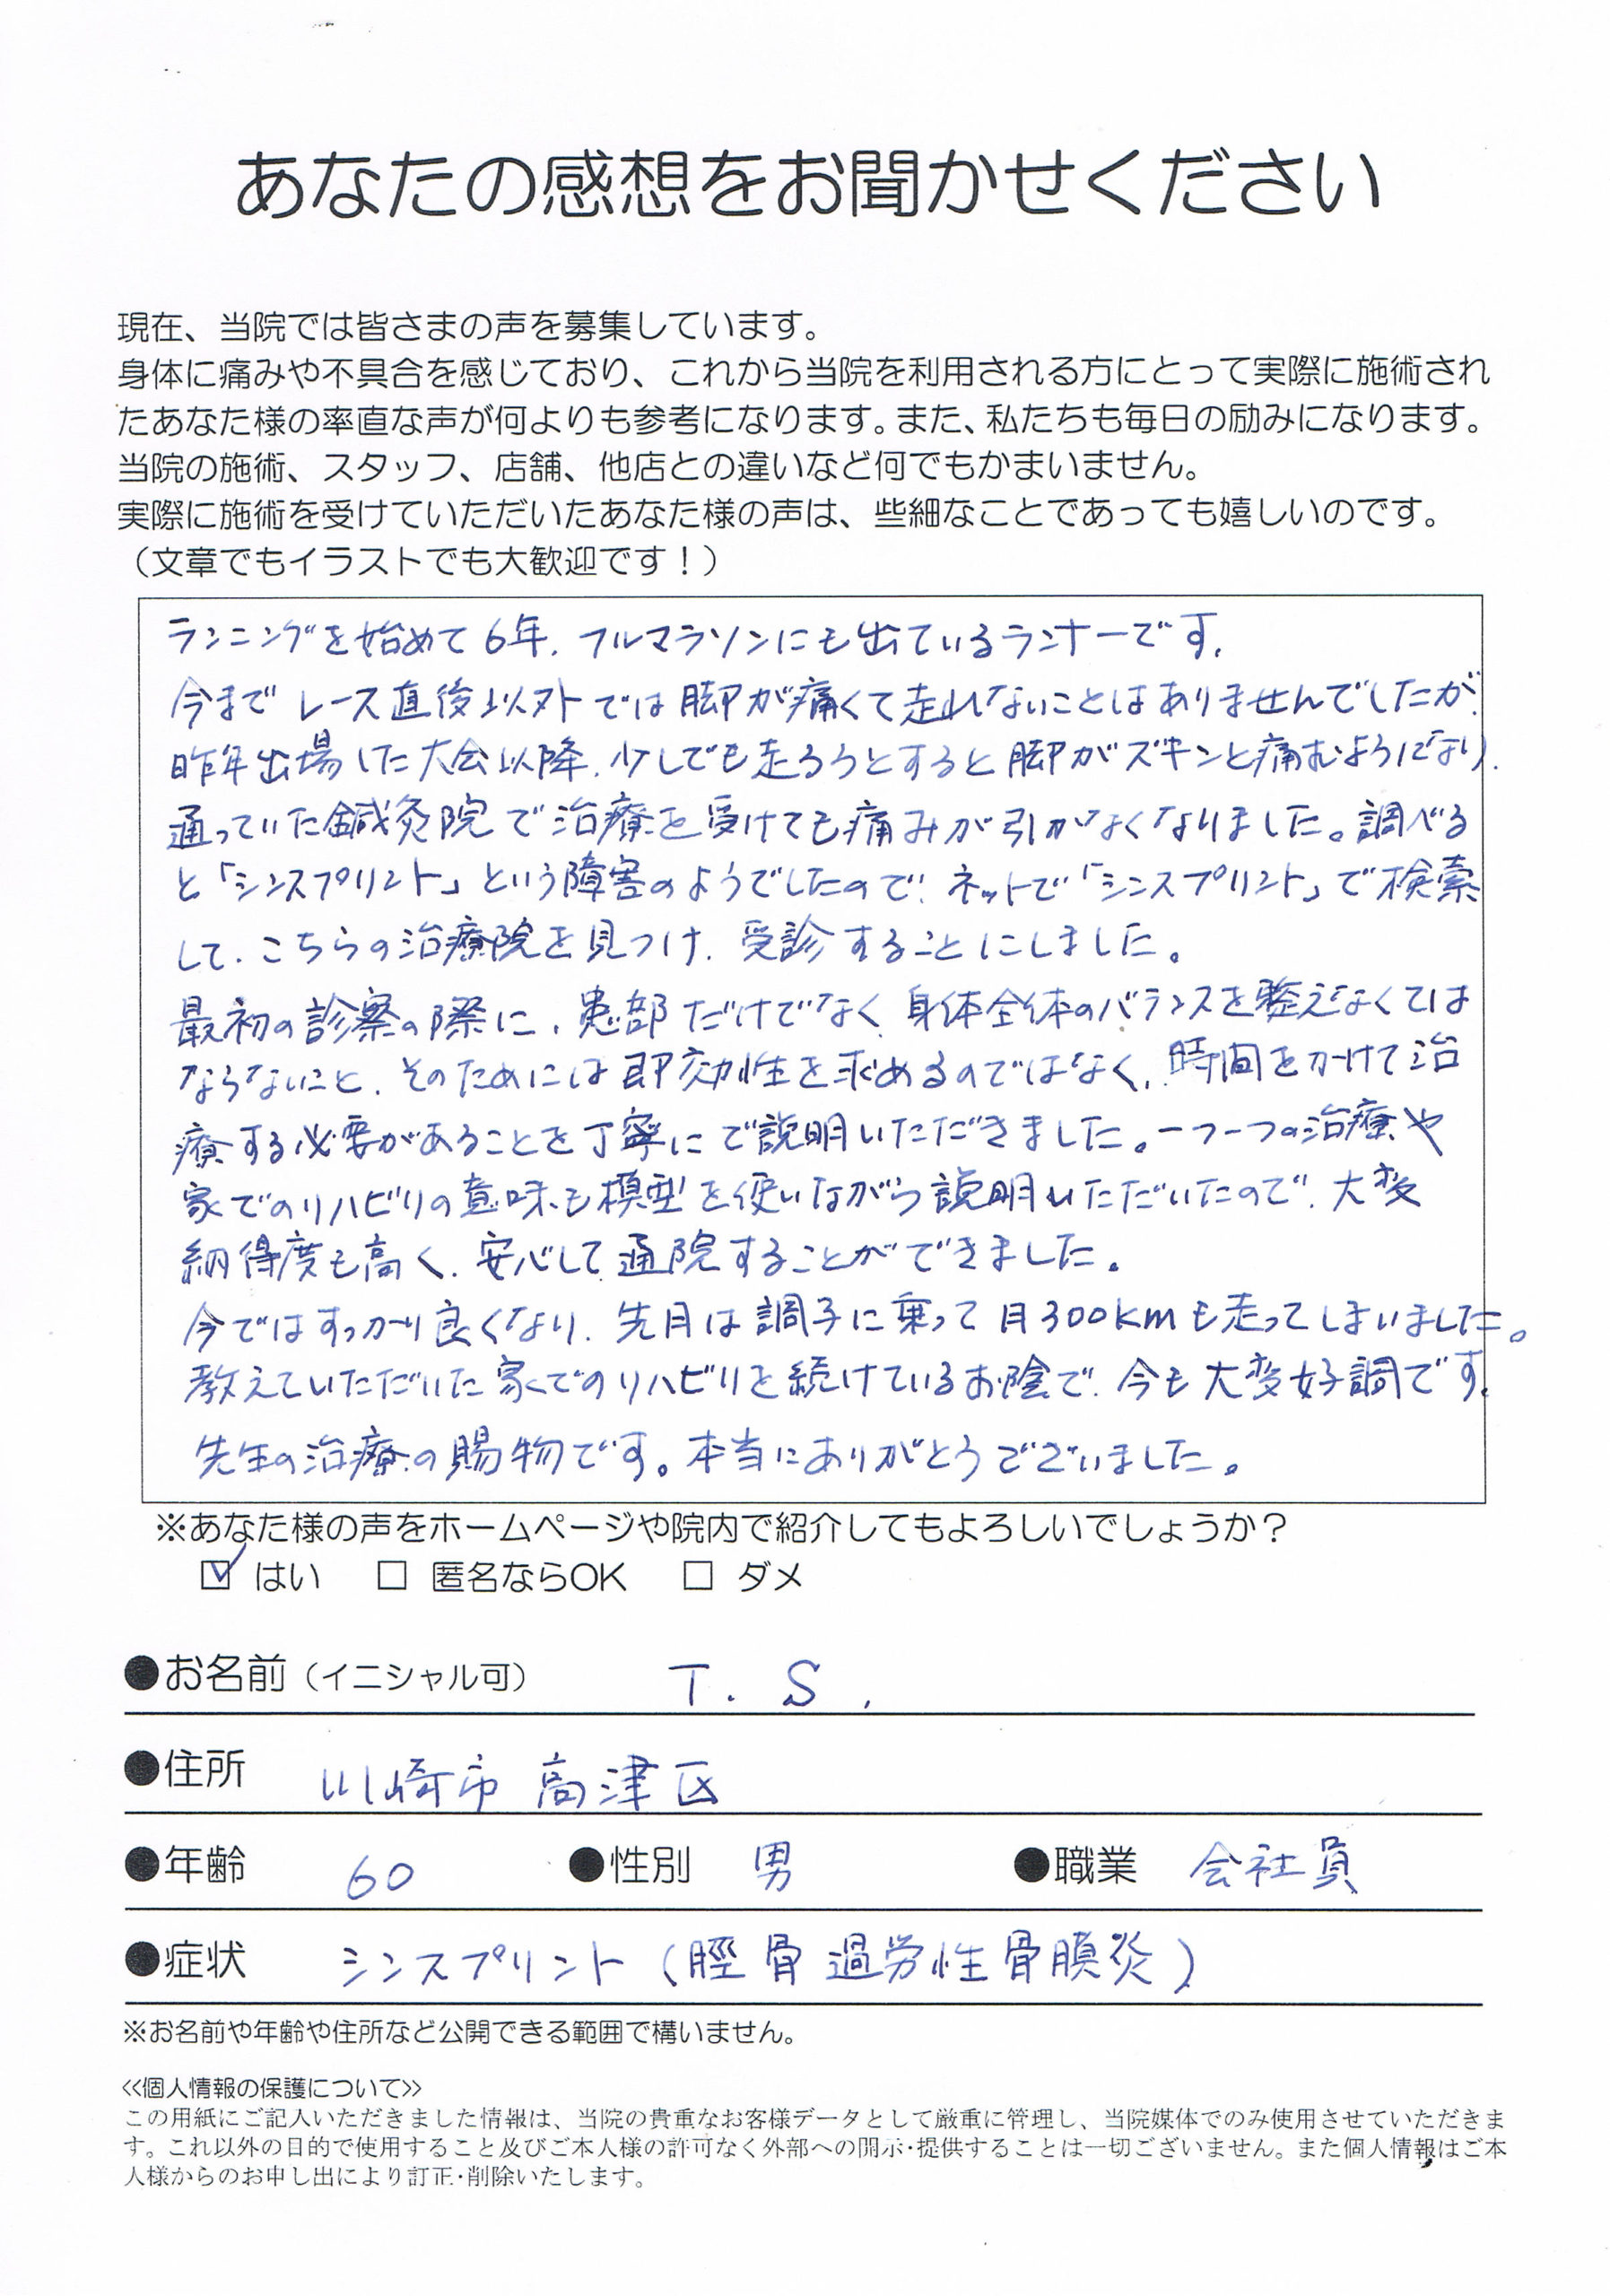 あなたの感想をお聞かせください
現在、当院では皆さまの声を募集しています。
身体に痛みや不具合を感じており、これから当院を利用される方にとって実際に施術され
たあなた様の率直な声が何よりも参考になります。また、私たちも毎日の励みになります。
当院の施術、スタッフ、店舗、他店との違いなど何でもかまいません。
実際に施術を受けていただいたあなた様の声は、些細なことであっても嬉しいのです。
（文章でもイラストでも大歓迎です！）
ランニングを始めて6年、フルマラソンにも出ているランナーです。
今までレース直後以外では脚が痛くて走れないことはありませんでしたが、
昨年出場した大会以降、少しでも走ろうとすると脚がズキンと痛むようになり、
通っていた鍼灸院で治療を受けても痛みが引かなくなりました。調べる
と「シンスプリント」という障害のようでしたので、ネットで「シンスプリント」で検索
して、こちらの治療院を見つけ、受診することにしました。
最初の診察の際に、患部だけでなく、身体全体のバランスを整えなくては
ならないこと、そのためには即効性を求めるのではなく、時間をかけて治
療する必要があることを丁寧にご説明いただきました。一つ一つの治療や
家でのリハビリの意味も模型を使いながら説明いただいたので、大変
納得度も高く、安心して通院することができました。
今ではすっかり良くなり、先月は調子に乗って月300kmも走ってしまいました。
教えていただいた家でのリハビリを続けているお陰で、今も大変好調です。
先生の治療の賜物です。本当にありがとうございました。
※あなた様の声をホームページや院内で紹介してもよろしいでしょうか？
☑ はい □ 匿名ならOK □ ダメ
●お名前（イニシャル可） T. S.
●住所 川崎市高津区
●年齢 60 ●性別 男 ●職業 会社員
●症状 シンスプリント（脛骨過労性骨膜炎）
※お名前や年齢や住所など公開できる範囲で構いません。
<<個人情報の保護について>>
この用紙にご記入いただきました情報は、当院の貴重なお客様データとして厳重に管理し、当院媒体でのみ使用させていただきま
す。これ以外の目的で使用すること及びご本人様の許可なく外部への開示・提供することは一切ございません。また個人情報はご本
人様からのお申し出により訂正・削除いたします。